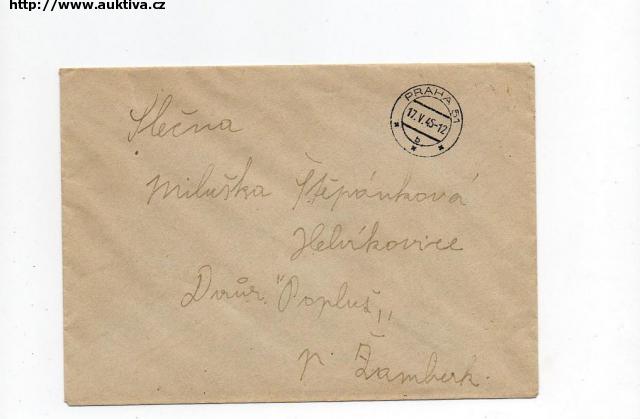 http://www.auktiva.cz
PRAHA 51
17.V.45-12
b
Slečna
Miluška Štěpánková
Helvíkovice
"Popluž"
p. Žamberk.